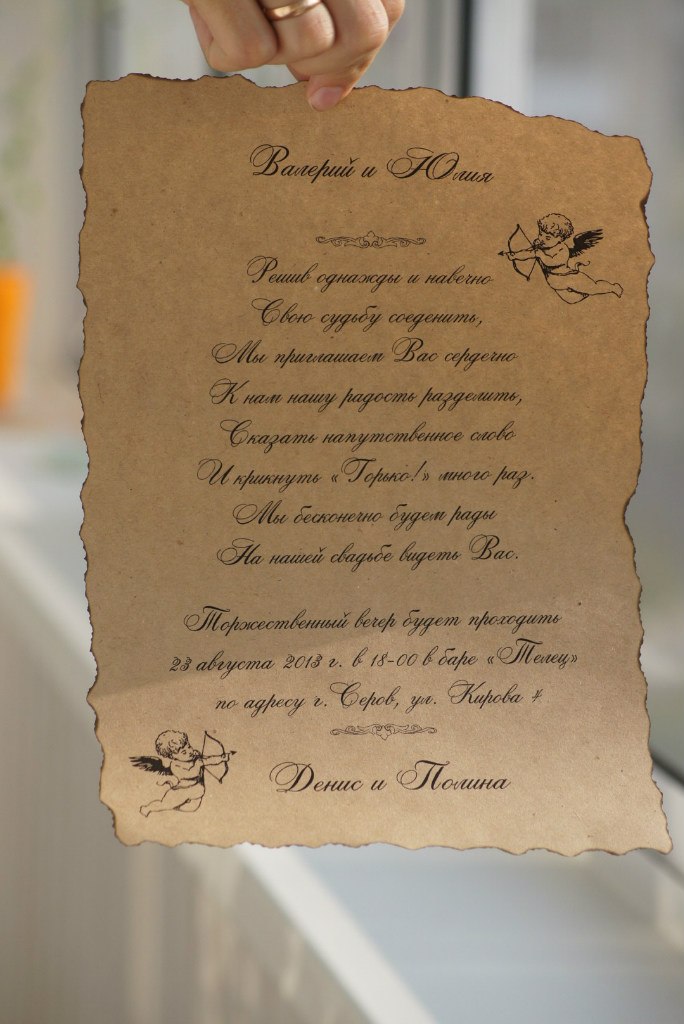 Валерий и Юлия
Решив однажды и навечно
Свою судьбу соеденить,
Мы приглашаем Вас сердечно
К нам нашу радость разделить,
Сказать напутственное слово
И крикнуть «Горько!» много раз.
Мы бесконечно будем рады
На нашей свадьбе видеть Вас.
Торжественный вечер будет проходить
23 августа 2013 г. в 18-00 в баре «Телец»
по адресу г. Серов, ул. Кирова
Денис и Полина